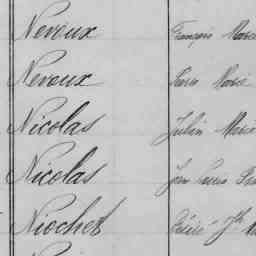 Neveux François Marie
Neveux Pierre Marie
Nicolas Julien Marie
Nicolas Jean Pierre
Niochet Désiré Jh